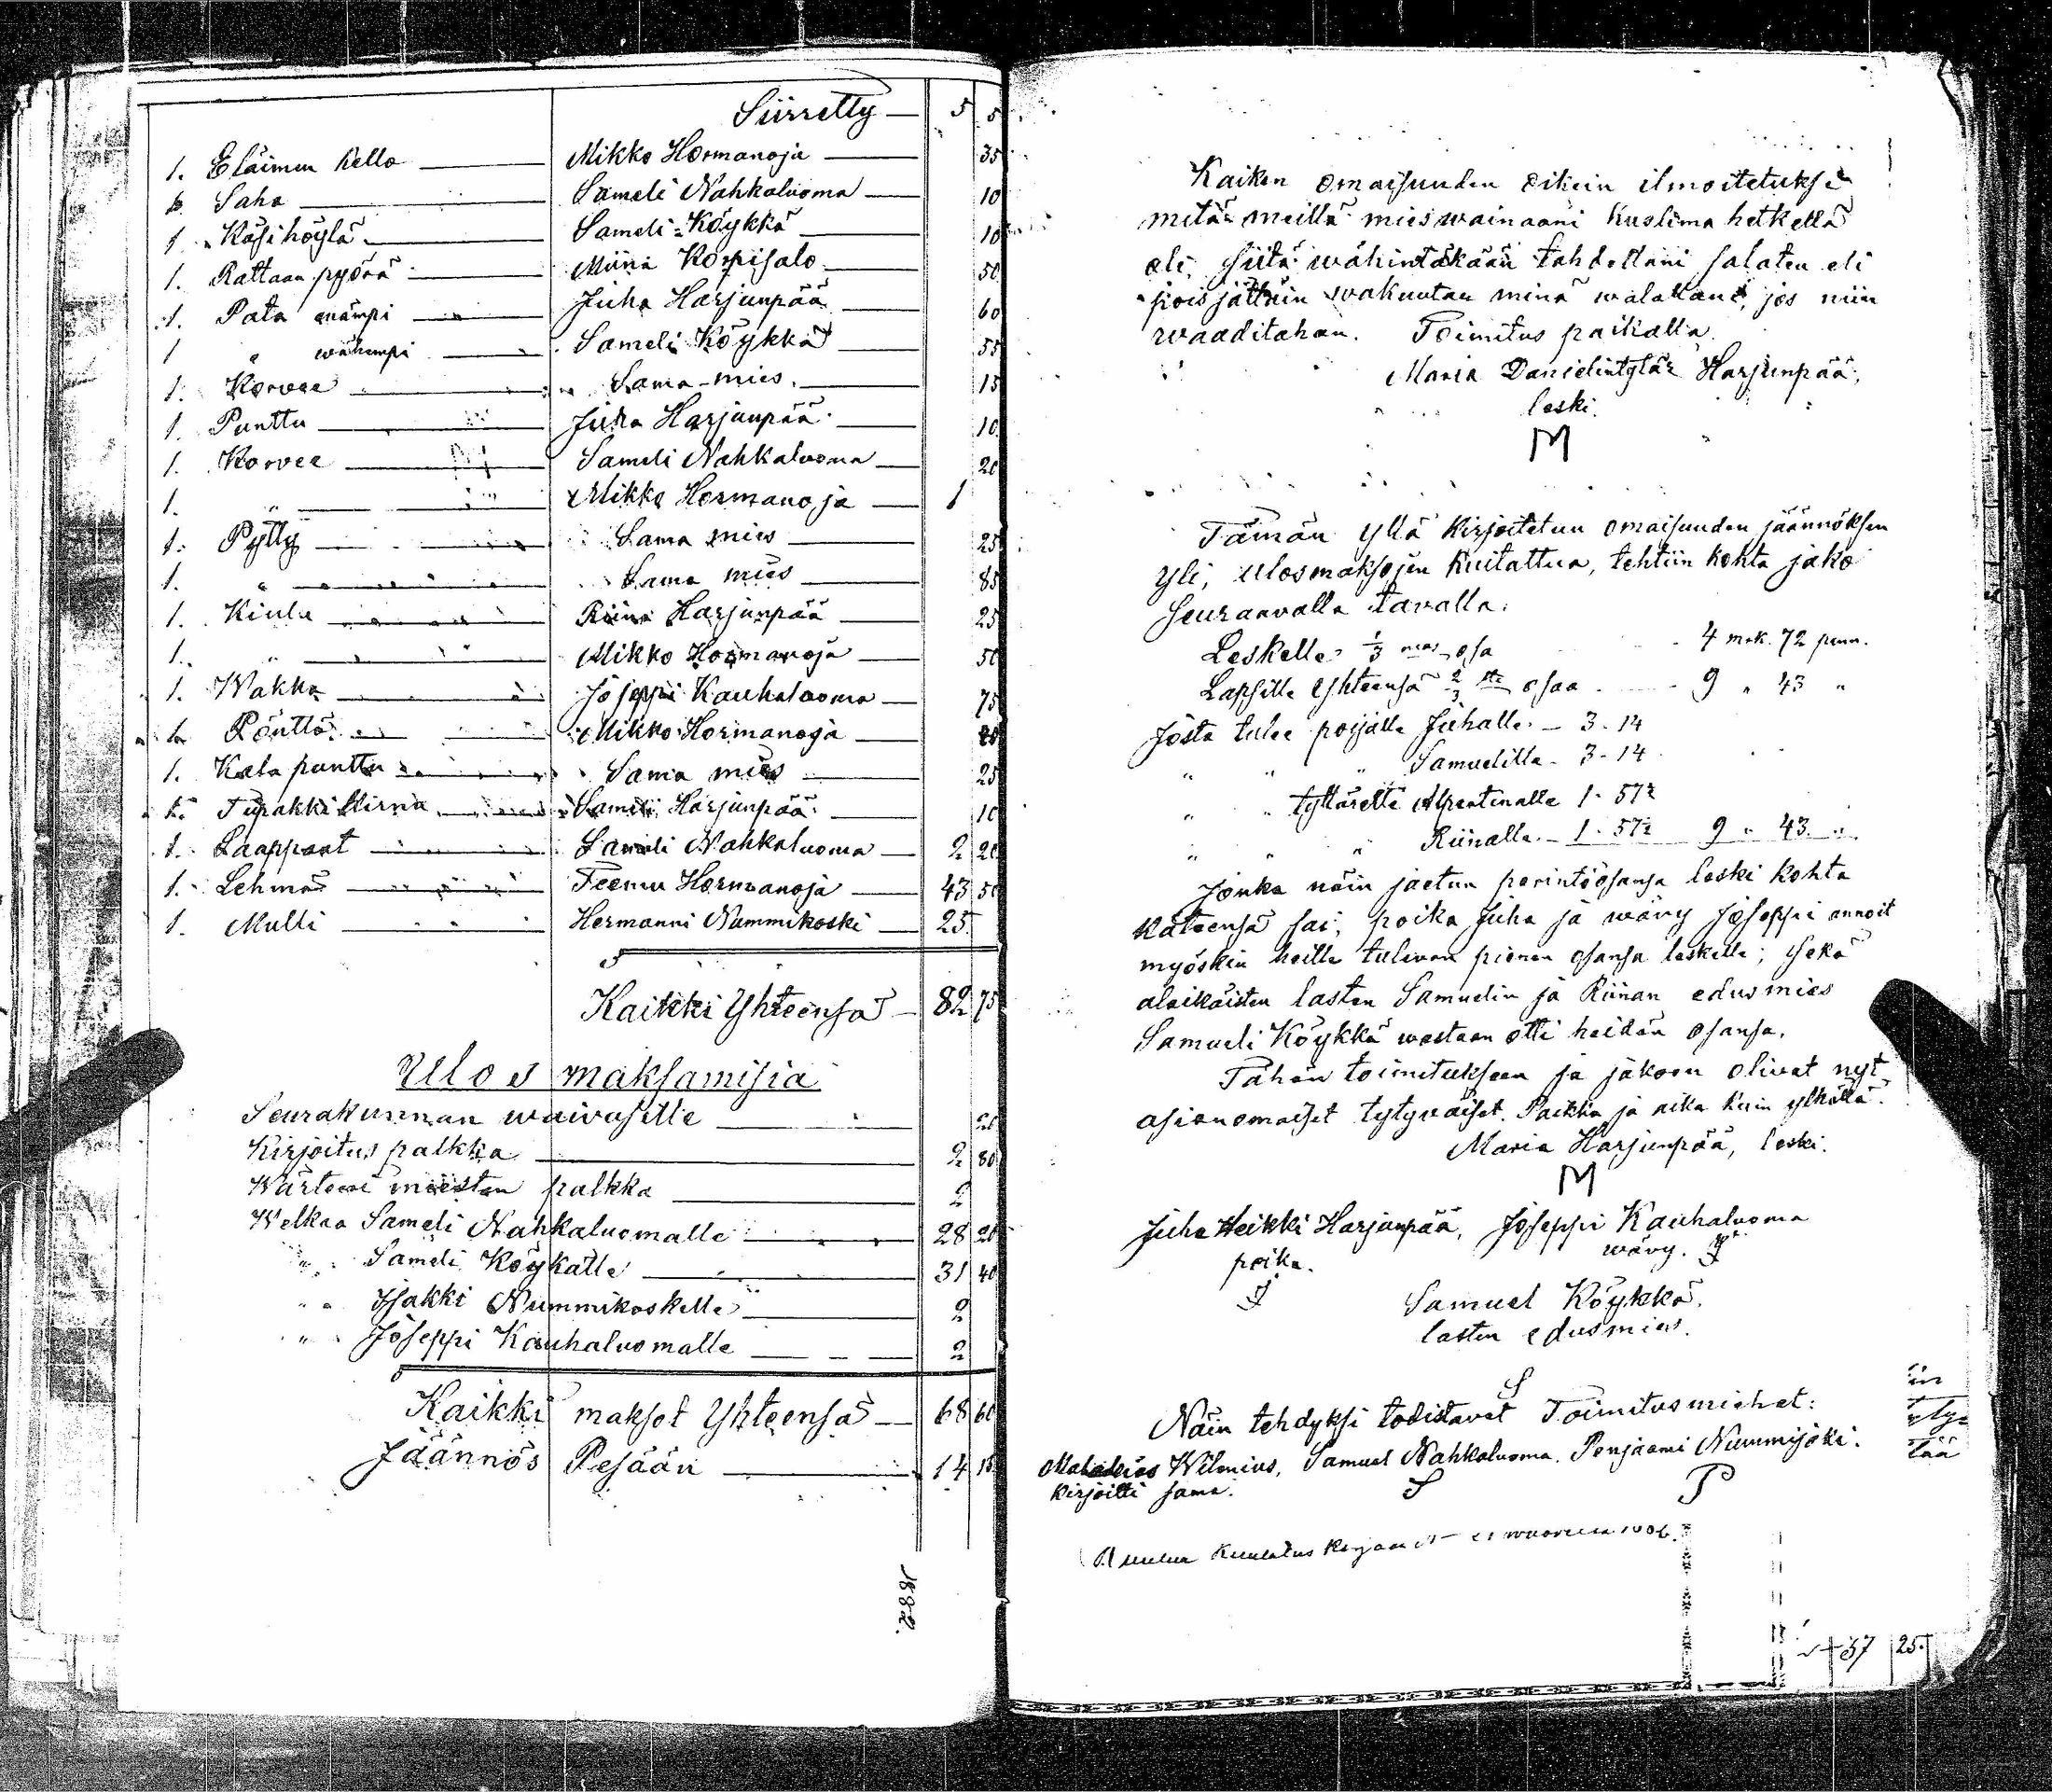 Siirretty — 5 5
1. Eläimen kello — Mikko Hormanoja — 35
1. Saha — Sameli Nahkaluoma — 10
1. Käsihöylä — Sameli Köykkä — 10
1. Rattaan pyörä — Miina Korpisalo — 50
1. Pata enämpi — Juha Harjunpää — 60
1 " wähempi — Sameli Köykkä — 55
1. Korvee — Sama mies — 15
1. Punttu — Juha Harjunpää — 10
1. Korvee — Sameli Nahkaluoma — 20
1. " — Mikko Hormanoja — 1
1. Pytty — Sama mies — 25
1. " — Sama mies — 85
1. Kiulu — Riina Harjunpää — 25
1. " — Mikko Hormanoja — 50
1. Wakka — Joseppi Kauhaluoma — 75
1. Pönttö — Mikko Hormanoja
1. Kala punttu — Sama mies — 25
1. Tupakki — Sameli Harjunpää — 10
1. Laappaat — Sameli Nahkaluoma — 2 20
1. Lehmä — Feemu Hormanoja — 43 50
1. Mulli — Hermanni Nummikoski — 25
Kaikki Yhteensä — 82 75
Ulos maksamisia
Seurakunnan waivasille —
Kirjoitus palkka — 2 80
miesten palkka — 2
Welkaa Sameli Nahkaluomalle — 28 20
" Sameli Köykälle — 31 40
" " Isakki Nummikoskelle — 2
" " Joseppi Kauhaluomalle — 2
Kaikki maksot Yhteensä — 68 60
Jäännös Pesään — 14 15
1882.
Kaiken omaisuuden oikein ilmoitetuksi
mitä meillä mieswainaani kuolima hetkellä
oli, siitä wähintäkään tahdottani salaten eli
pois jättäin wakuutan minä walallani, jos niin
waaditahan. Toimitus paikalla.
Maria Danielintytär Harjunpää,
leski.
M
Tämän yllä kirjoitetun omaisuuden jäännöksen
yli, ulosmaksojen kuitattua, tehtiin kohta jako
seuraavalla tavalla:
Leskelle 1/3 mas osa 4 mrk. 72 penn.
Lapsille Yhteensä 2/3 osaa 9 " 43 "
Josta tulee pojalle Juhalle — 3 - 14
" " " Samuelille - 3 - 14
" " tyttärelle Alpertinalle 1 - 57½
" " " Riinalle — 1 - 57½ 9 " 43 "
Jonka näin jaetun perintöosansa leski kohta
käteensä sai; poika Juha ja wävy Joseppi annoit
myöskin heille tulevan pienen osansa leskelle; sekä
alaikäisten lasten Samuelin ja Riinan edusmies
Samueli Köykkä wastaan otti heidän osansa.
Tähän toimitukseen ja jakoon olivat nyt
asianomaiset tytyväiset. Paikka ja aika kuin ylhällä.
Maria Harjunpää, leski.
M
Juha Heikki Harjunpää, Joseppi Kauhaluoma
poika. wävy. J
J
Samuel Köykkä.
lasten edusmies.
S
Näin tehdyksi todistavat Toimitusmiehet:
Wilenius, Samuel Nahkaluoma. Penjaami Nummijoki.
kirjoitti sama. S P
in
tää
37 25